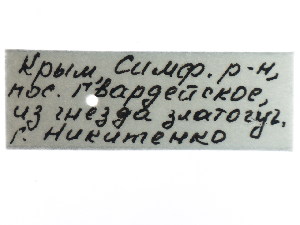 Крым, Симф. р-н,
пос. Гвардейское,
из гнезда златогуз.
Г. Никитенко